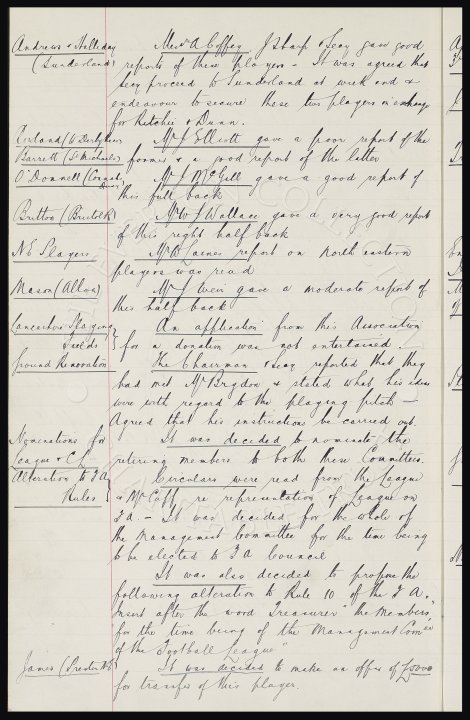 Andrews & Halliday
(Sunderland)
Messrs A Coffey, J Sharp & Secy gave good
reports of these players - It was agreed that
Secy proceed to Sunderland at week end &
endeavour to secure these two players in exchange
for Ritchie & Dunn.
Garrett (St Michaels)
Mr J Elliott gave a poor report of the
former & a good report of the latter
O'Donnell (Connah's
Mr J McGill gave a good report of
this full back
Britton (Bristol R)
Mr W J Wallace gave a very good report
of this right half back
N E Players
report on North eastern
players was read
Mason (Alloa)
Mr J Weir gave a moderate report of
this half back
Lancashire Playing
Fields
An application from this Association
for a donation was not entertained.
Ground Renovation
The Chairman & Secy reported that they
had met Mr Brydon & stated what his ideas
were with regard to the playing pitch -
Agreed that his instructions be carried out.
Nominations for
League & C L
It was decided to nominate the
retiring members to both these Committees.
Alteration to F A
Rules
Circulars were read from the League
& Mr Cuff re representation of League on
F A. - It was decided for the whole of
the Management Committee for the time being
to be elected to F A Council
It was also decided to propose the
following alteration to Rule 10 of the F A.
Insert after the word Treasurer "the Members
for the time being of the Management Comee
of the Football League"
James (Preston N E)
It was decided to make an offer of £5000
for transfer of this player.